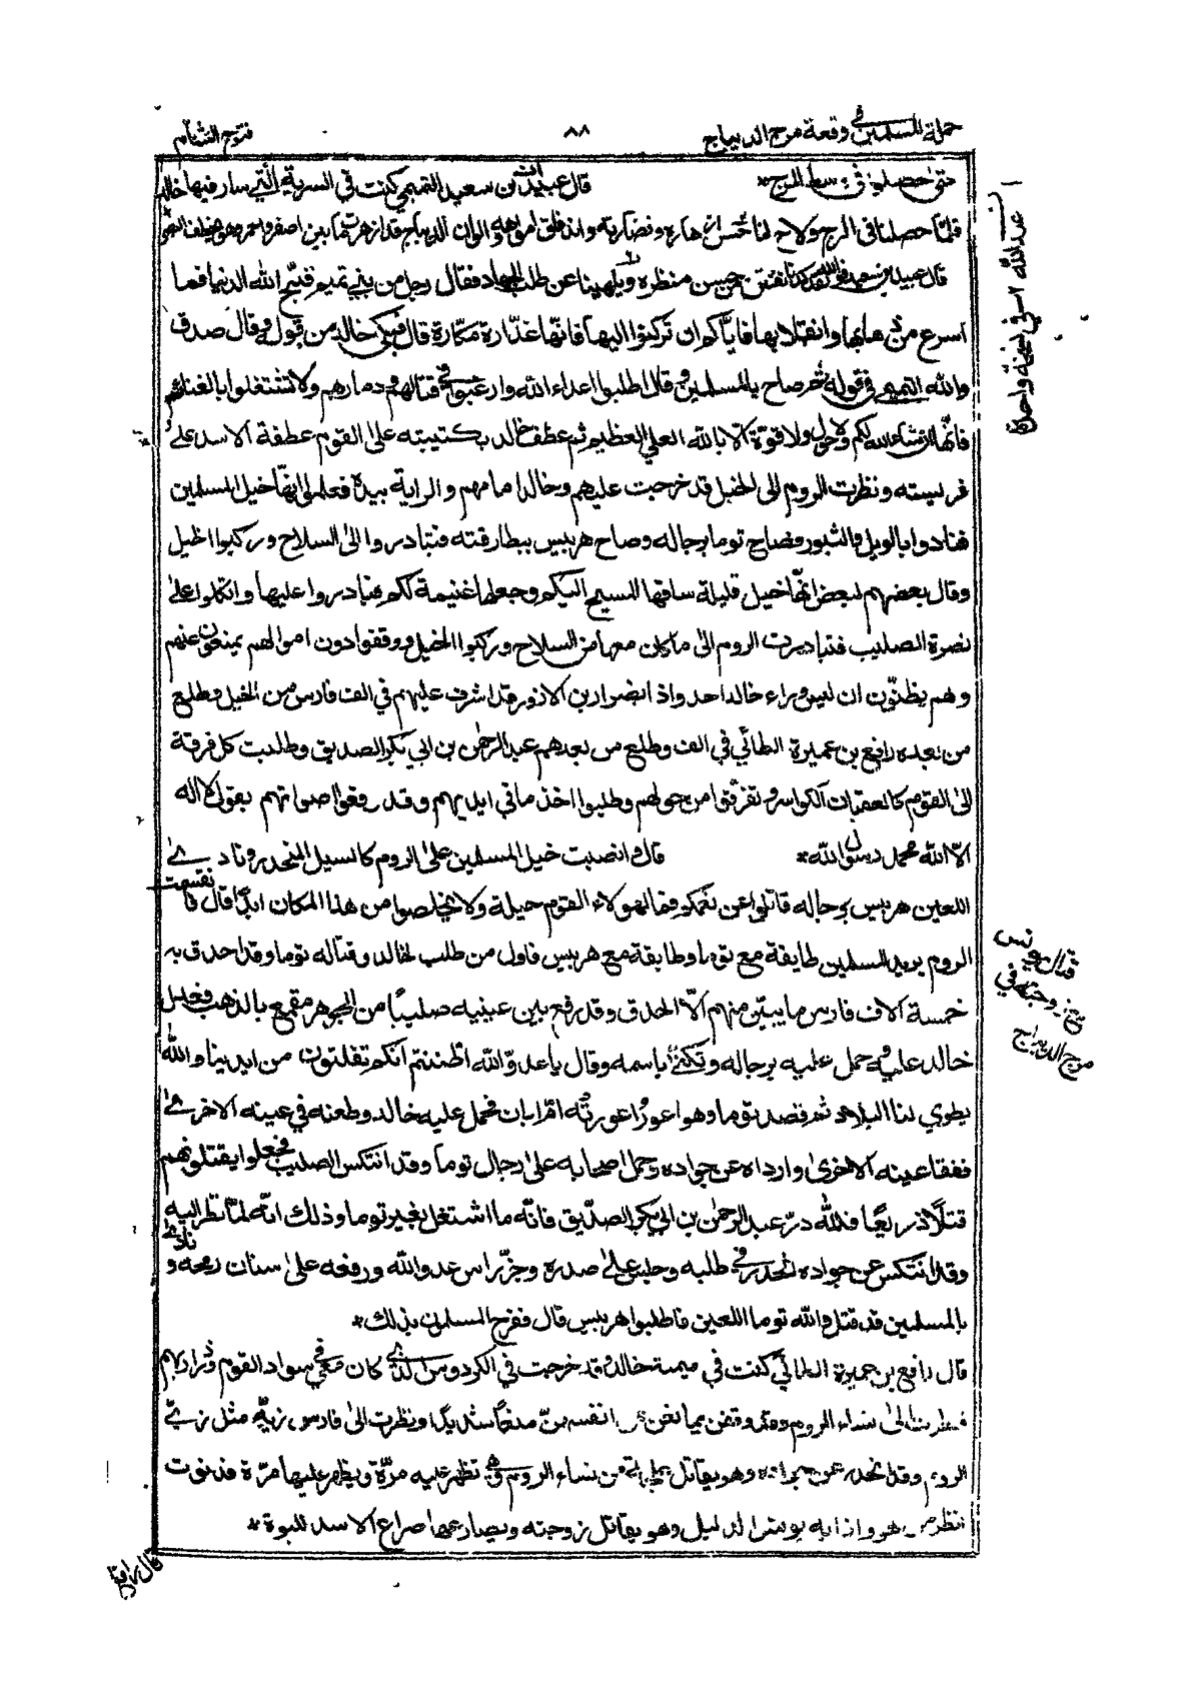 حملة المسلمين في وقعة مرج الديباج ٨٨ فتوح الشام
حتى حصلوا في وسط المرج * قال عبيد بن سعيد التميمي كنت في السرية التي سار فيها خالد
فلما حصلنا في المرج ولاح لنا حسن ازهاره ونضارته والوان الديباج قد ازهرت ما بين اصفر واحمر
قال عبيد بن سعيد فوالله لقد كدنا نفتتن بحسن منظره ويلهينا عن طلب الجهاد فقال رجل من بني تميم قبّح الله الدنيا فما
اسرع من ذهابها وانقلابها فاياكم ان تركنوا اليها فانّها غدّارة مكّارة قال فبكى خالد من قوله وقال صدق
والله التميمي في قوله ثم صاح بالمسلمين وقال اطلبوا اعداء الله وارغبوا في قتالهم ودمارهم ولا تشتغلوا بالغنائم
فانّها ان شاء الله لكم ولا حول ولا قوّة الّا بالله العلي العظيم ثم عطف خالد بكتيبته على القوم عطفة الاسد على
فريسته ونظرت الروم الى الخيل قد خرجت عليهم وخالد امامهم والراية بيده فعلموا انها خيل المسلمين
فنادوا بالويل والثبور وصاح توما برجاله وصاح هربيس ببطارقته فتبادروا الى السلاح وركبوا الخيل
وقال بعضهم لبعض انّها خيل قليلة ساقها المسيح اليكم وجعلها غنيمة لكم فبادروا عليها واتكلوا على
نصرة الصليب فتبادرت الروم الى ما كان معها من السلاح وركبوا الخيل ووقفوا دون اموالهم يمنعون عنهم
وهم يظنّون ان ليس وراء خالد احد واذا بضرار بن الازور قد اشرف عليهم في الف فارس من الخيل وطلع
من بعده رافع بن عميرة الطائي في الف وطلع من بعدهم عبد الرحمن بن ابي بكر الصديق وطلبت كل فرقة
الى القوم كالعقبان الكواسر وتفرّقوا من حولهم وطلبوا اخذ ما في ايديهم وقد رفعوا اصواتهم بقول لا اله
الّا الله محمد رسول الله * قال وانصبت خيل المسلمين على الروم كالسيل المنحدر ونادى
اللعين هربيس برجاله قاتلوا عن نعمكم فما لهولاء القوم حيلة ولا يخلصوا من هذا المكان ابدًا قال فانقسمت
الروم يريد المسلمين طايفة مع توما وطايفة مع هربيس فاول من طلب خالد وقتاله توما وقد احدق به
خمسة الاف فارس ما يبيّن منهم الّا الحدق وقد رفع بين عينيه صليبًا من الجوهر مقمع بالذهب فحمل
خالد عليه وحمل عليه برجاله وتكنّى باسمه وقال يا عدوّ الله اظننتم انكم تفلتون من ايدينا والله
يطوي لنا البلاد ثم قصد توما وهو اعور اعورته ام ابان فحمل عليه خالد وطعنه في عينه الاخرى
ففقا عينه الاخرى وارداه عن جواده وحمل اصحابه على رجال توما وقد انتكس الصليب فجعلوا يقتلونهم
قتلًا ذريعًا فلله درّ عبد الرحمن بن ابي بكر الصدّيق فانّه ما اشتغل بغير توما وذلك انّه لمّا نظر اليه
وقد انتكس عن جواده انحدر في طلبه وجلس على صدره وجزّ راس عدو الله ورفعه على سنان رمحه ونادى
بالمسلمين قد قتل والله توما اللعين فاطلبوا هربيس قال ففرح المسلمون بذلك *
قال رافع بن عميرة الطائي كنت في ميمنة خالد وقد خرجت في الكردوس الذي كان معي في سواد القوم وذراريهم
فنظرت الى نساء الروم وقد وقفن يمانعن عن انفسهنّ منعًا شديدًا ونظرت الى فارس زيّه مثل زيّ
الروم وقد انحدر عن جواده وهو يقاتل علجة من نساء الروم وهي تظهر عليه مرّة ويظهر عليها مرّة فدنوت
انظر من هو واذا به يونس الدليل وهو يقاتل زوجته ويصارعها صراع الاسد للبوة *
قال رافع
عبد الله في نسخة واحدة
قتال يونس
بزوجته في
مرج الديباج